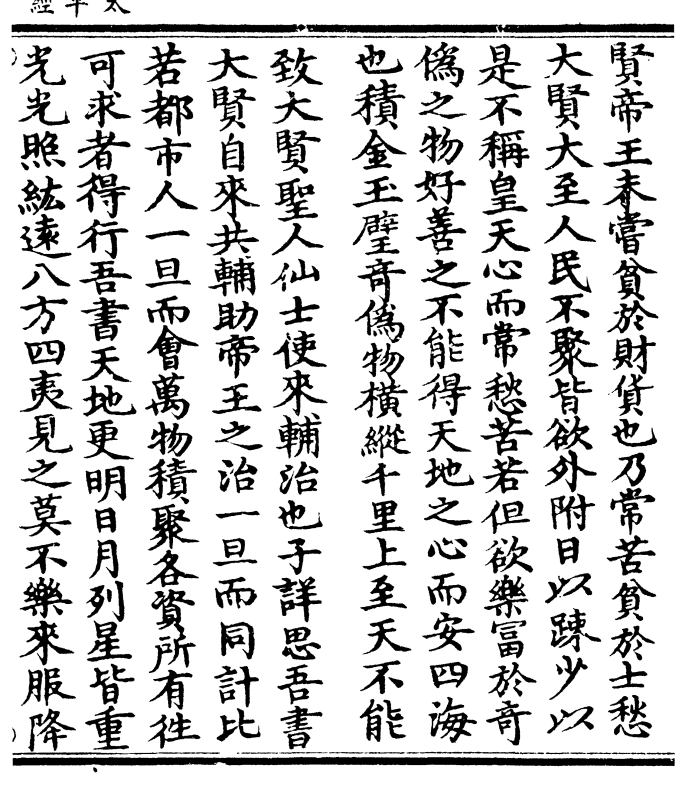 太平經
賢帝王未嘗貧於財貨也乃常苦貧於士愁
大賢大至人民不聚皆欲外附日以踈少以
是不稱皇天心而常愁苦若但欲樂富於奇
僞之物好善之不能得天地之心而安四海
也積金玉璧奇僞物橫縱千里上至天不能
致大賢聖人仙士使來輔治也子詳思吾書
大賢自來共輔助帝王之治一旦而同計比
若都市人一旦而會萬物積聚各資所有徃
可求者得行吾書天地更明日月列星皆重
光光照紘遠八方四夷見之莫不樂來服降